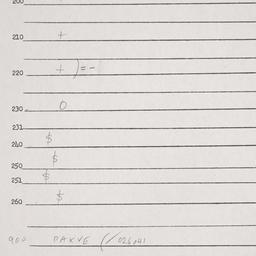 200
210 +
+ ) = -
220
230 0
231
$
240
$
250 $
251
$
260
900